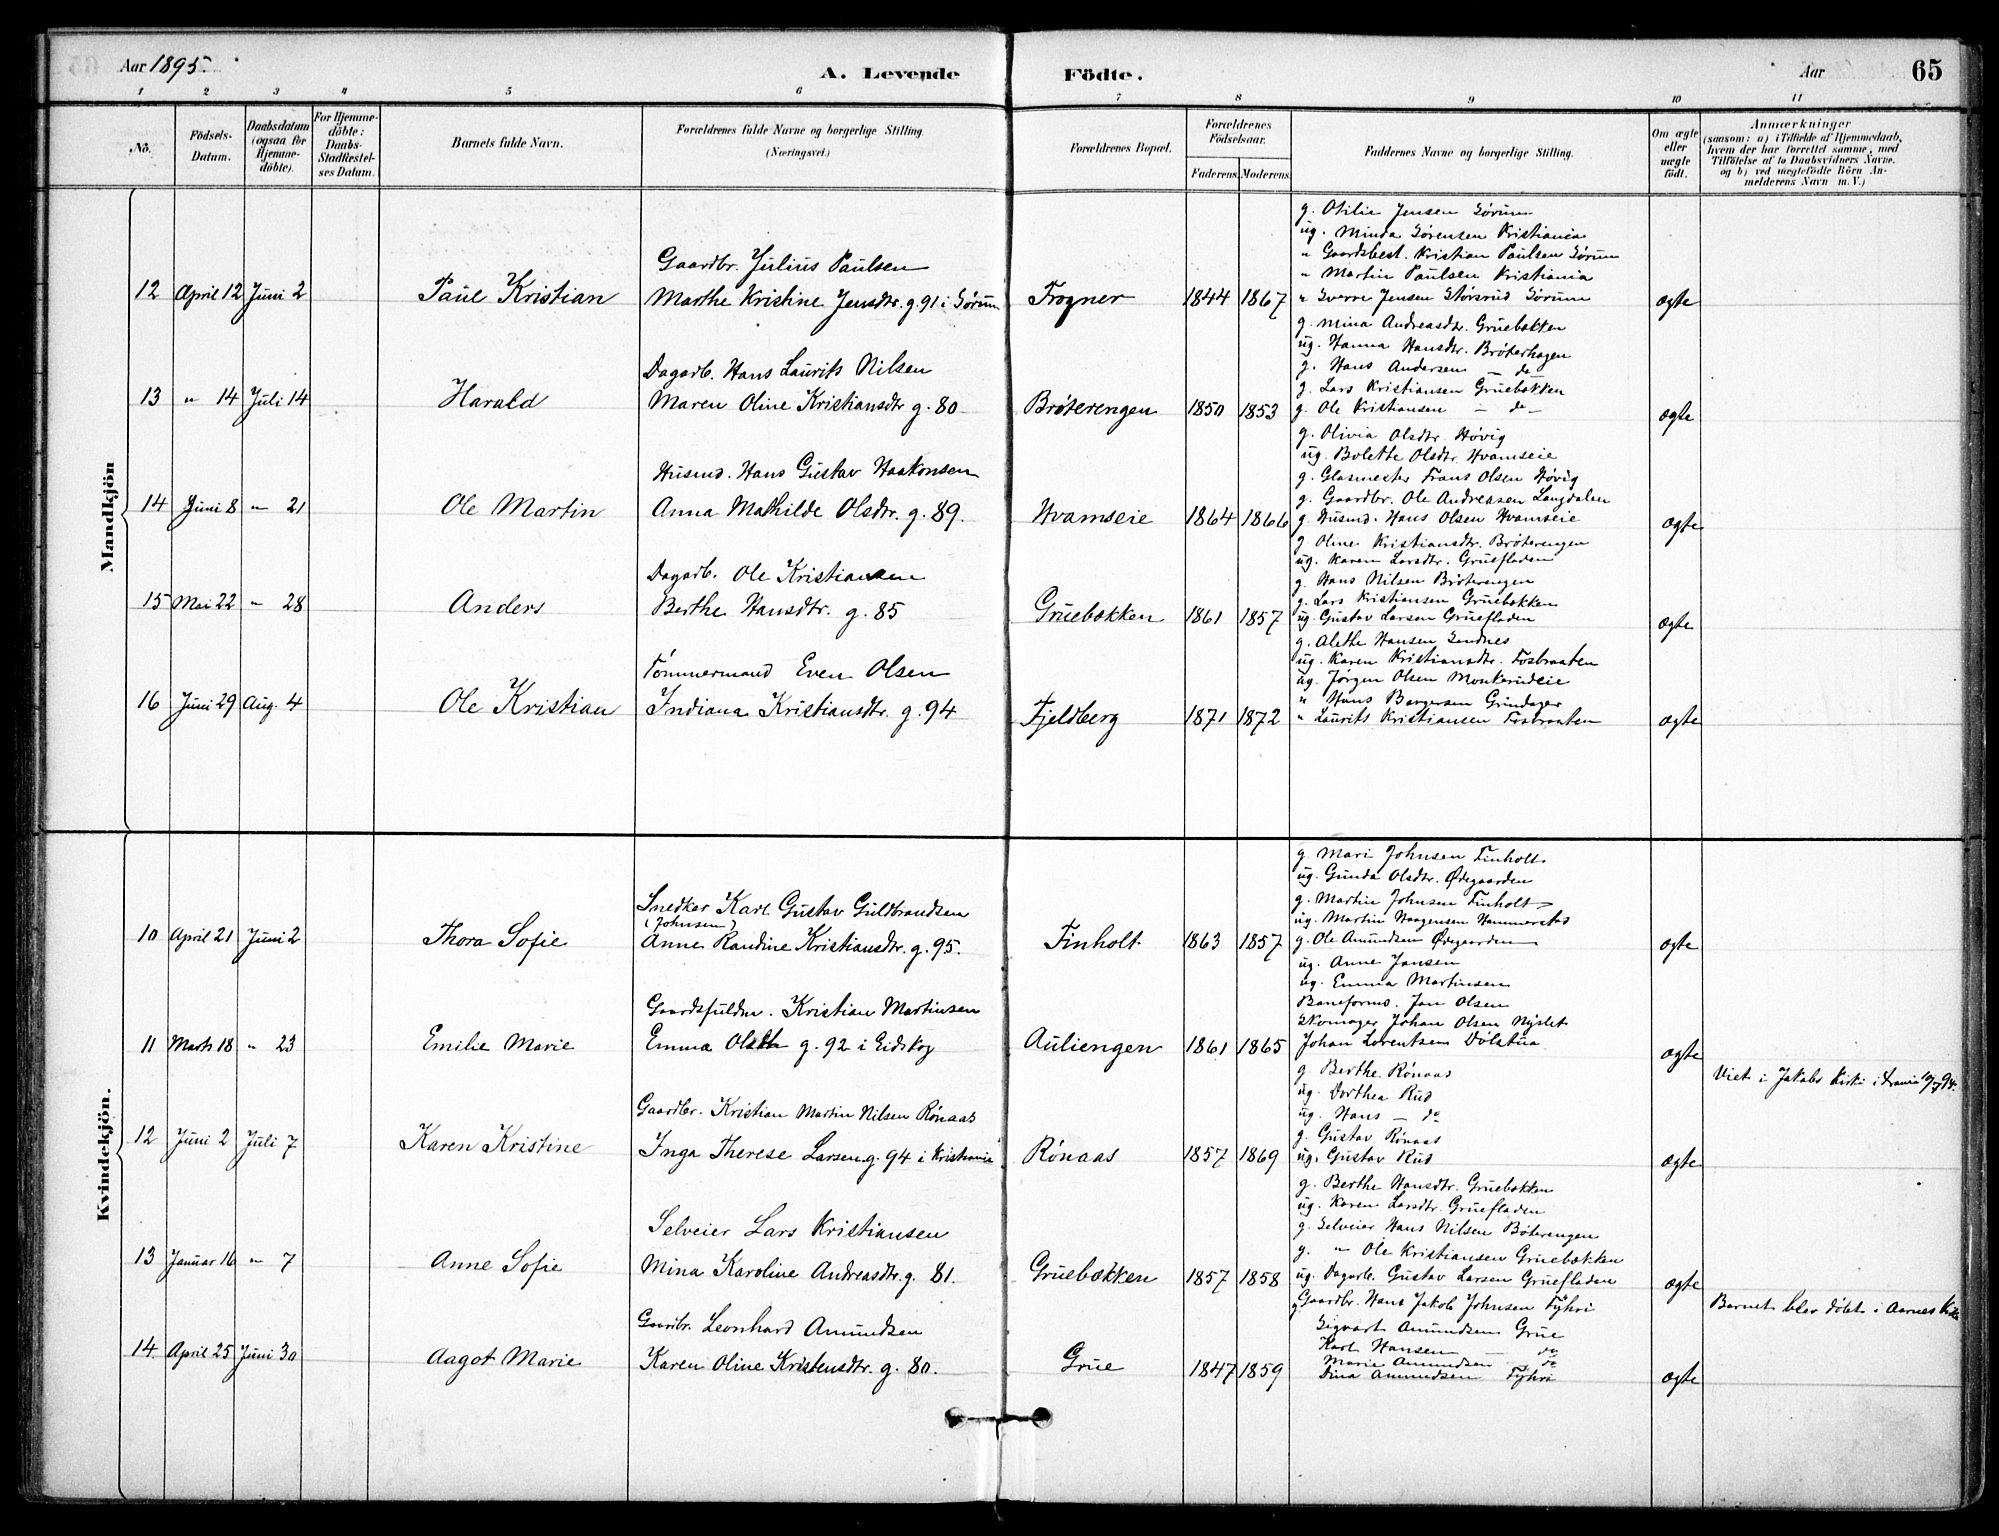 Aar 1895.
A. Levende Födte.
Aar
65
1 2 3 4 5 6 7 8 9 10 11
No.
Födsels-Datum.
Daabsdatum (ogsaa for Hjemme-döbte).
For Hjemme-döbte: Daabs-Stadfæstel-ses Datum.
Barnets fulde Navn.
Forældrenes fulde Navne og borgerlige Stilling. (Næringsvei.)
Forældrenes Bopæl.
Forældrenes Födselsaar.
Faderens. Moderens.
Faddernes Navne og borgerlige Stilling.
Om ægte eller uægte födt.
Anmærkninger
(saasom: a) i Tilfælde af Hjemmedaab, hvem der har forrettet samme, med Tilföielse af to Daabsvidners Navne. og b) ved uægtefödte Börn An-melderens Navn m. V.)
Mandkjön
g. Otilie Jensen Sørum
ug. Minda Sørensen Kristiania
Gaardbr. Julius Paulsen
" Gaardsbest. Kristian Paulsen Sørum
" Martin Paulsen Kristiania
12 April 12 Juni 2 Paul Kristian Marthe Kristine Jensdtr. g. 91 i Sørum Frogner 1844 1867 " Sverre Jensen Størsrud Sørum ægte
g. Mina Andreasdtr. Gruebækken
ug. Hanna Hansdtr. Brøterhagen
Dagarb. Hans Laurits Nilsen
g. Hans Andersen — do —
g. Lars Kristiansen Gruebækken
13 " 14 Juli 14 Harald Maren Oline Kristiansdtr g. 80 Brøterengen 1850 1853 g. Ole Kristiansen — do — ægte
g. Olivia Olsdtr. Høvig
ug. Bolette Olsdtr. Hvamseie
Husmd. Hans Gustav Haakonsen
g. Glasmester Frans Olsen Høvig
g. Gaardbr. Ole Andreasen Langdalen
14 Juni 8 " 21 Ole Martin Anna Mathilde Olsdtr. g. 89. Hvamseie 1864 1866 g. Husmd. Hans Olsen Hvamseie ægte
g. Oline Kristiansdtr. Brøterengen
ug. Karen Larsdtr. Gruefladen
Dagarb. Ole Kristiansen
g. Hans Nilsen Brøterengen
g. Lars Kristiansen Gruebækken
15 Mai 22 " 28 Anders Berthe Hansdtr. g. 85 Gruebækken 1861 1857 ug. Gustav Larsen Gruefladen ægte
g. Alethe Hansen Sandnes
ug. Karen Kristiansdtr. Fosbraaten
Tømmermand Even Olsen
ug. Jørgen Olsen Monkerudeie
" Hans Borgersen Grindager
16 Juni 29 Aug. 4 Ole Kristian Indiana Kristiansdtr. g. 94 Fjeldberg 1871 1872 " Laurits Kristiansen Fosbraaten ægte
Kvindekjön.
g. Mari Johnsen Finholt
ug. Gunda Olsdtr. Ødegaarden
Snedker Karl Gustav Guldbrandsen
g. Martin Johnsen Finholt
(Johnsen)
ug. Martin Haagensen
10 April 21 Juni 2 Thora Sofie Anne Randine Kristiansdtr. g. 95. Finholt 1863 1857 g. Ole Amundsen Ødegaarden ægte
ug. Anne Jansen
ug. Emma Martinsen
Gaardsfuldm. Kristian Martinsen
Baneform. Jan Olsen
Skomager Johan Olsen Nyslet
11 Marts 18 " 23 Emilie Marie Emma g. 92 i Eidskog Auliengen 1861 1865 Johan Lorentsen Dølstua ægte
g. Berthe Rønaas
Viet i Jakobs Kirke i Krania 10/7 94.
ug. Dorthea Rud
Gaardbr. Kristian Martin Nilsen Rønaas
ug. Hans — do
g. Gustav Rønaas
12 Juni 2 Juli 7 Karen Kristine Inga Therese Larsen g. 94 i Kristiania Rønaas 1857 1869 ug. Gustav Rud ægte
g. Berthe Hansdtr. Gruebækken
ug. Karen Larsdtr. Gruefladen
Selveier Lars Kristiansen
g. Selveier Hans Nilsen Brøterengen
g. " Ole Kristiansen Gruebækken
13 Januar 16 " 7 Anne Sofie Mina Karoline Andreasdtr. g. 81. Gruebækken 1857 1858 ug. Dagarb. Gustav Larsen Gruefladen ægte
g Gaardbr. Hans Jakob Johnsen Fyhri
Barnet blev døbt i Aarnes Kirke
Gaardbr. Leonhard Amundsen
Sigvart Amundsen Grue
Karl Hansen — do
Marie Amundsen do
14 April 25 Juni 30 Aagot Marie Karen Oline Kristensdtr. g. 80. Grue 1847 1859 Dina Amundsen Fyhri ægte